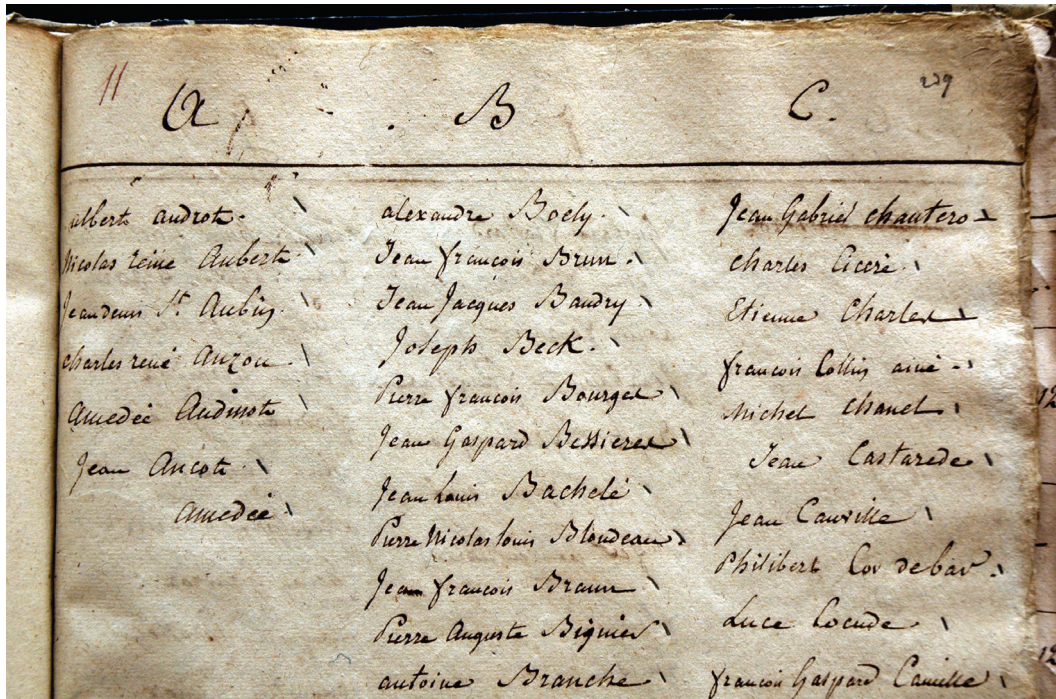 11
239
A
albert audrot.
Nicolas réine Aubert.
Jean denis St. Aubin.
charles réné Auzou.
Amedée Audinot
Jean Ancot.
Amedée.
B
alexandre Boely.
Jean françois Brun.
Jean Jacques Baudry.
Joseph Beck.
Pierre françois Bourget
Jean Gaspard Bessieres
Jean Louis Bachelé
Pierre Nicolas louis Blondeau.
Jean françois Braun
Pierre Auguste Bignier
antoine Branche
C.
Jean Gabriel chautero
charles Ciceri.
Etienne Charles
françois Collin ainé.
Michel Chanet
Jean Castarede
Jean Cauville
Philibert Cor de bar.
Luce Cocude
françois Gaspard Camille
12
12